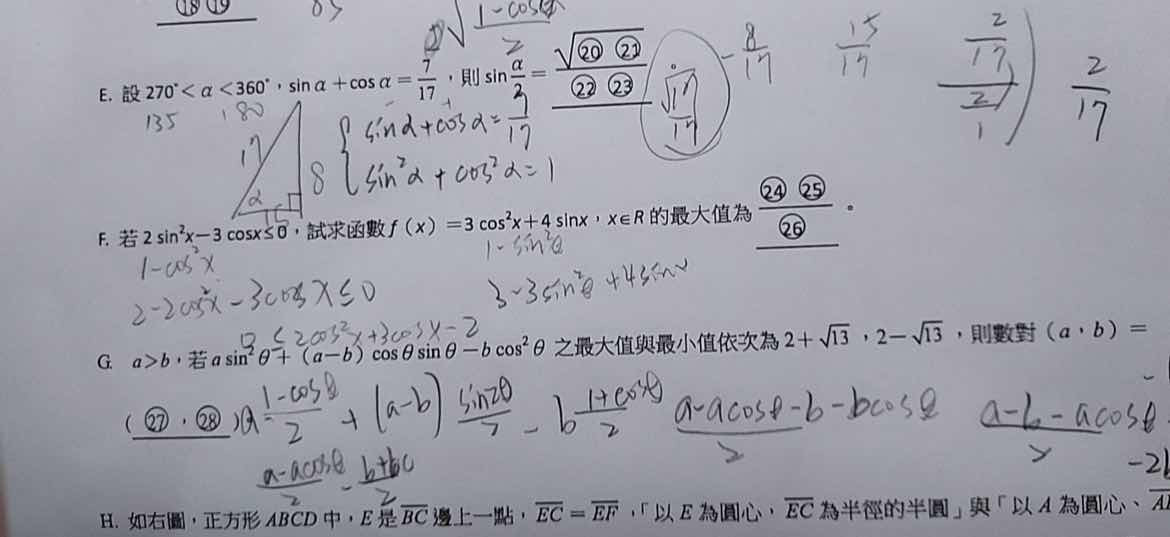 ⑱ ⑲
√(1-cosα)/2
E. 設 270°< α <360°，sin α +cos α = 7/17，則 sin α/2 = √⑳㉑/㉒㉓
√17/17
-8/17 15/17 2/17 / 2/1 2/17
135 180
17 8 α 15
{ sinα+cosα=7/17
sin²α + cos²α=1
F. 若 2 sin²x−3 cosx≤0，試求函數 f（x）=3 cos²x+4 sinx，x∈R 的最大值為 ㉔㉕/㉖。
1-cos²x 1-sin²θ
2-2cos²x-3cosx≤0 3-3sin²θ+4sinx
0≤2cos²x+3cosx-2
G. a>b，若 a sin² θ +（a−b）cos θ sin θ −b cos² θ 之最大值與最小值依次為 2+√13，2−√13，則數對（a，b）=
（㉗，㉘） a (1-cosθ)/2 + (a-b) sin2θ/2 - b (1+cosθ)/2 (a-acosθ-b-bcosθ)/2 a-b-acosθ/2
(a-acosθ)/2 - (b+bc)/2 -2b
H. 如右圖，正方形 ABCD 中，E 是 BC 邊上一點，EC = EF，「以 E 為圓心，EC 為半徑的半圓」與「以 A 為圓心、